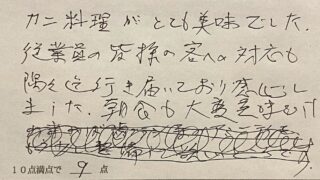 カニ料理がとても美味でした、
従業員の皆様の客への対応も
隅々迄行き届いており感心し
ました、朝食も大変美味
10点満点で 9 点